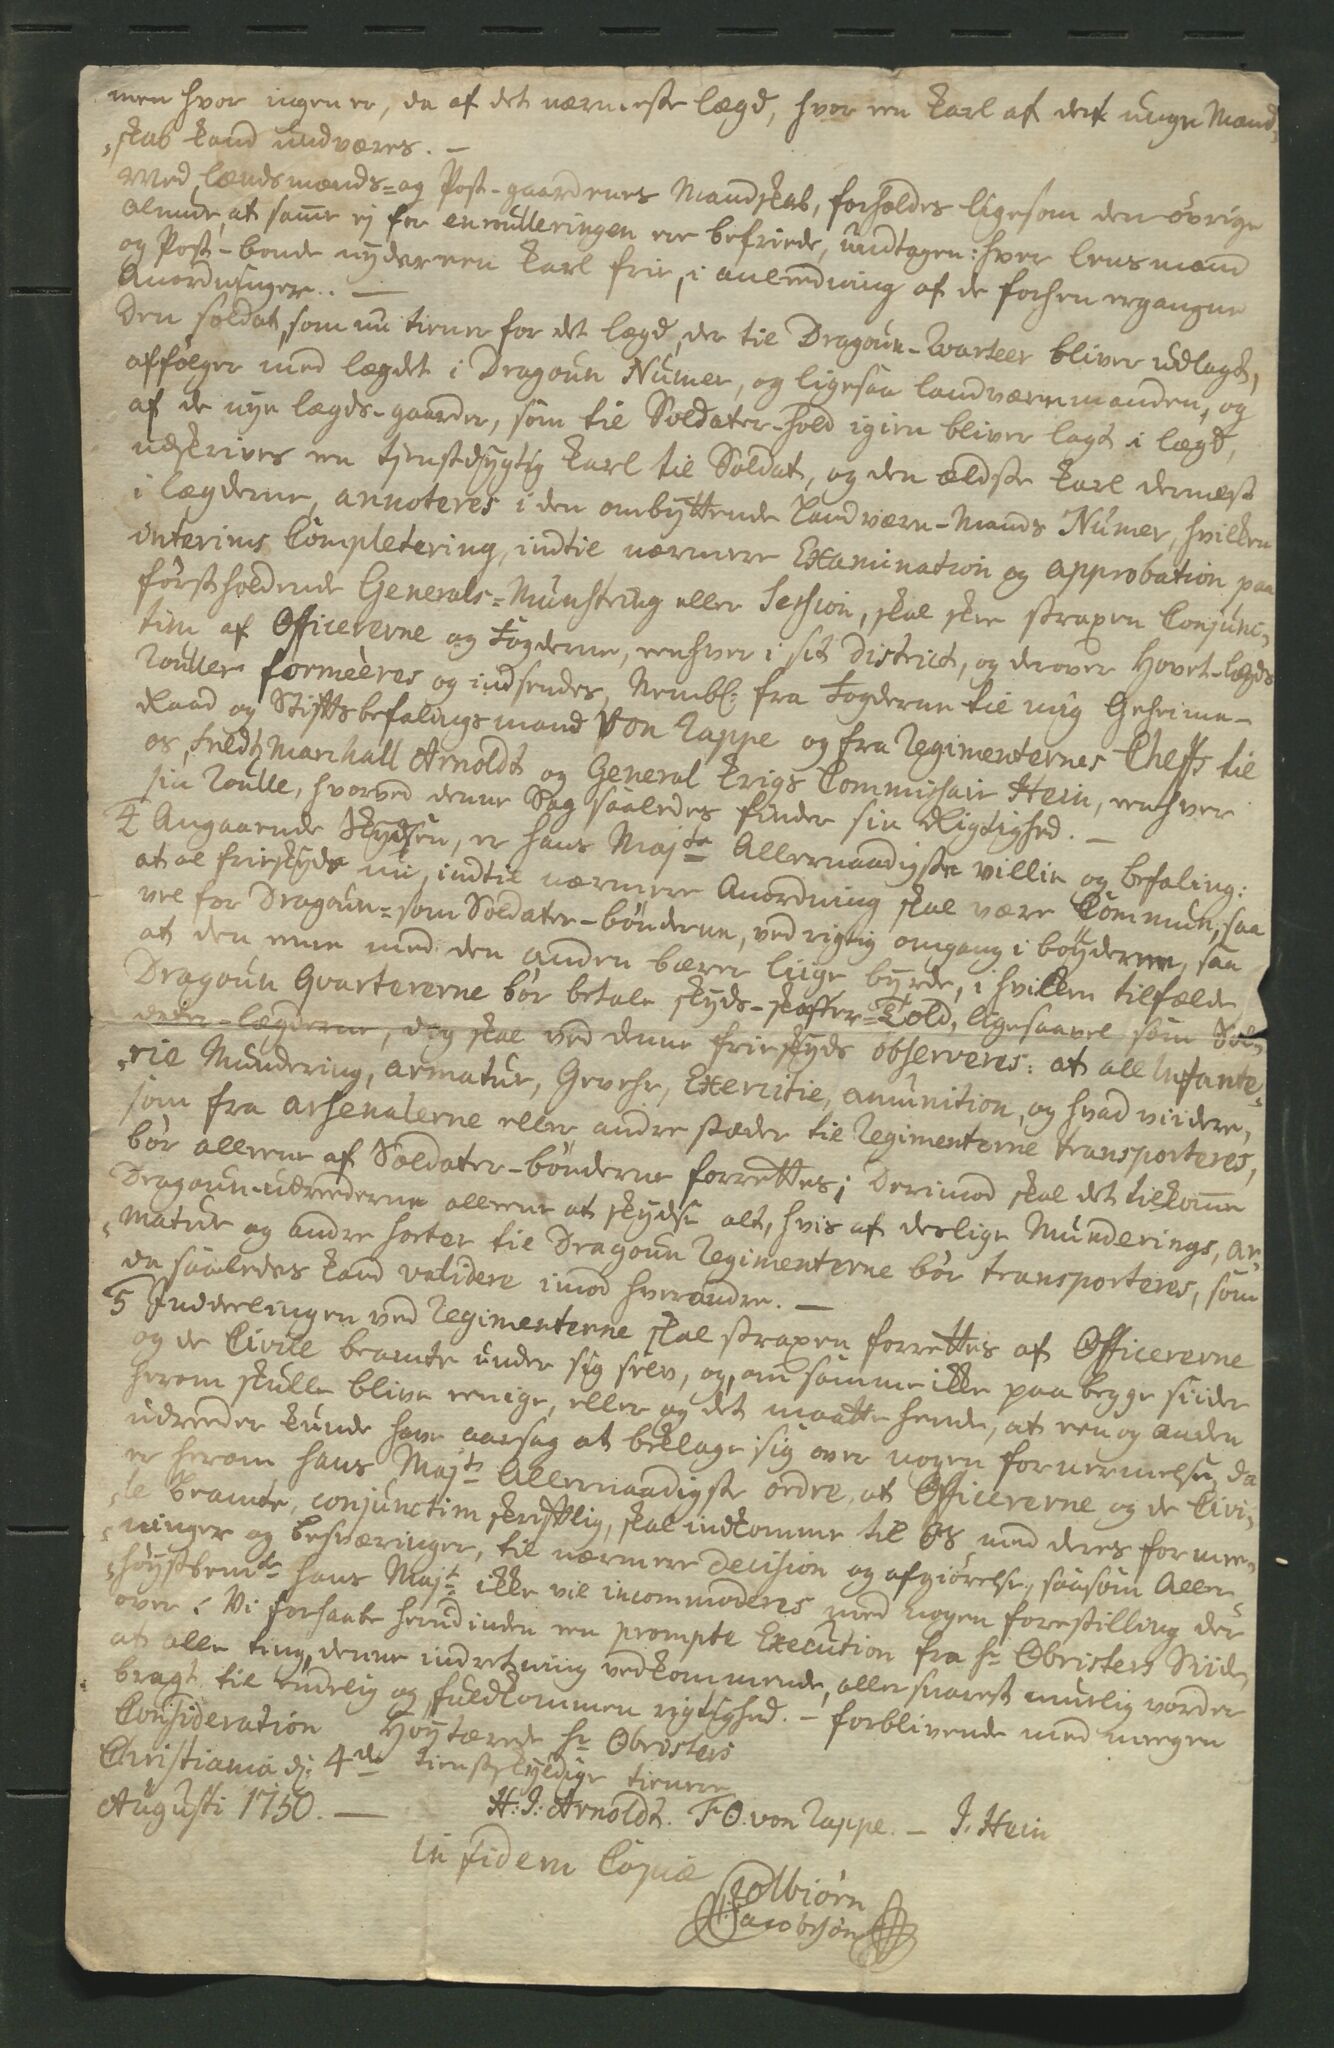 men hvor ingen er, da af det nærmeste lægd, hvor een karl af det unge Mand-
„skab kand undværes. —
Med lændsmænds- og Post-gaardenes Mandskab, forholdes ligesom den övrige
almue, at samme ej for enroulleringen ere befriede, undtagen: hver lensmand
og Post-bonde nyder een karl frie, i anleedning af de forhen ergangne
Anordninger. —
Den soldat, som nu tiener for det lægd, der til Dragoun-Qvarteer bliver udlagt,
affölger med lægdet i Dragoun Numer, og ligesaa landværnmanden, og
af de nye lægds-gaarder, som til Soldater-hold igien bliver lagt i lægd,
udskrives een tjenstdygtig karl til Soldat, og den ældste karl dernest
i lægderne, annoteres i den ombyttende Landværn-Mands Numer, hvilken
interims Completering, indtil nærmere Examination og approbation paa
förstholdende Generals-Munstring eller Session, skal skee strapen Conjunc-
tim af Officererne og Fogderne, eenhver i sit District, og derover Hovet-lægds
Rouller formeeres og indsendes, Nembl: fra Fogderne til mig Geheime-
Raad og Stiftsbefalingsmand Von Rappe og fra Regimenternes Cheffs til
os, Feldt Marchall Arnoldt og General Krigs Commissair Hein, eenhver
sin Roulle, hvorved denne Sag saaledes finder sin Rigtighed. —
4 Angaaende Skydsen, er hans Majts Allernaadigste villie og befaling:
at al frieskyds nu, indtil nærmere Anordning skal være Commun, saa
vel for Dragoun- som Soldater-bönderne, ved rigtig omgang i böyderne, saa
at den eene med den anden bærer liige byrde, i hvilken tilfælde
Dragoun Qvartererne bör betale skyds-skaffer-Told, ligesaavel som Sol-
dater-lægderne, dog skal ved denne frieskyds observeres: at all Infante-
„rie Mundering, armatur, Gevehr, Exercitie, amunition, og hvad viidere,
som fra arsenalerne eller andre stæder til Regimenterne transporteres,
bör alleene af Soldater-bönderne forrettes; Derimod skal det tilkomme
Dragoun-udreederne alleene at skydse alt, hvis af deslige Munderings, ar-
„matur og andre sorter til Dragoun Regimenterne bör transporteres, som
da saaledes kand validere imod hverandre. —
5 Inddelingen ved Regimenterne skal strapen forrettes af Officererne
og de Civile beamte under sig selv, og, om samme ikke paa begge siider
herom skulle blive eenige, eller og det maatte hende, at een og anden
udreeder kunde have aarsag at beklage sig over nogen fornermelse, da
er herom hans Majts Allernaadigste ordre, at Officererne og de Civi-
„le beamte, conjunctim skriftlig, skal indkomme til os med deres formee-
„ninger og besværinger, til nærmere Decision og afgiörelse, saasom Aller-
„höystbemte hans Majt ikke vil incommoderes med nogen forestilling der
over. Vi forhaabe herudinden een prompte Execution fra hr Obristers Siide,
at alle ting, denne indretning vedkommende, aller snarest muelig vorder
bragt til endelig og fuldkommen rigtighed. — forblivende med meegen
Consideration Höytærede hr Obristers
Christiania dj: 4de tienstskyldige tienere
Augusti 1750. — H: J: Arnoldt. F O. von Rappe. — J. Hein
In fidem Copiæ
Colbiörn
Jacobsön